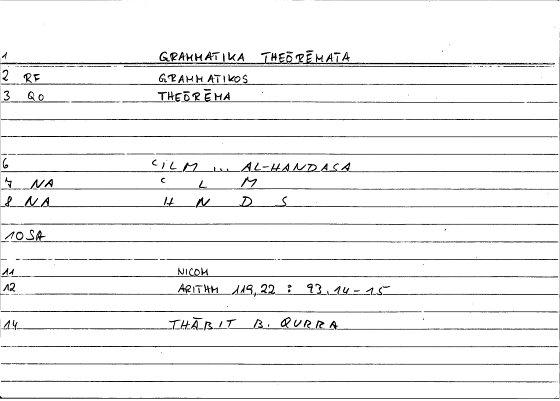 1 GRAMMATIKA THEŌRĒMATA
2 RF GRAMMATIKOS
3 QO THEŌRĒMA
6 ʿILM ... AL-HANDASA
7 NA ʿ L M
8 NA H N D S
10 SA
11 NICOM
12 ARITHM 119,22 : 93.14-15
14 THĀBIT B. QURRA